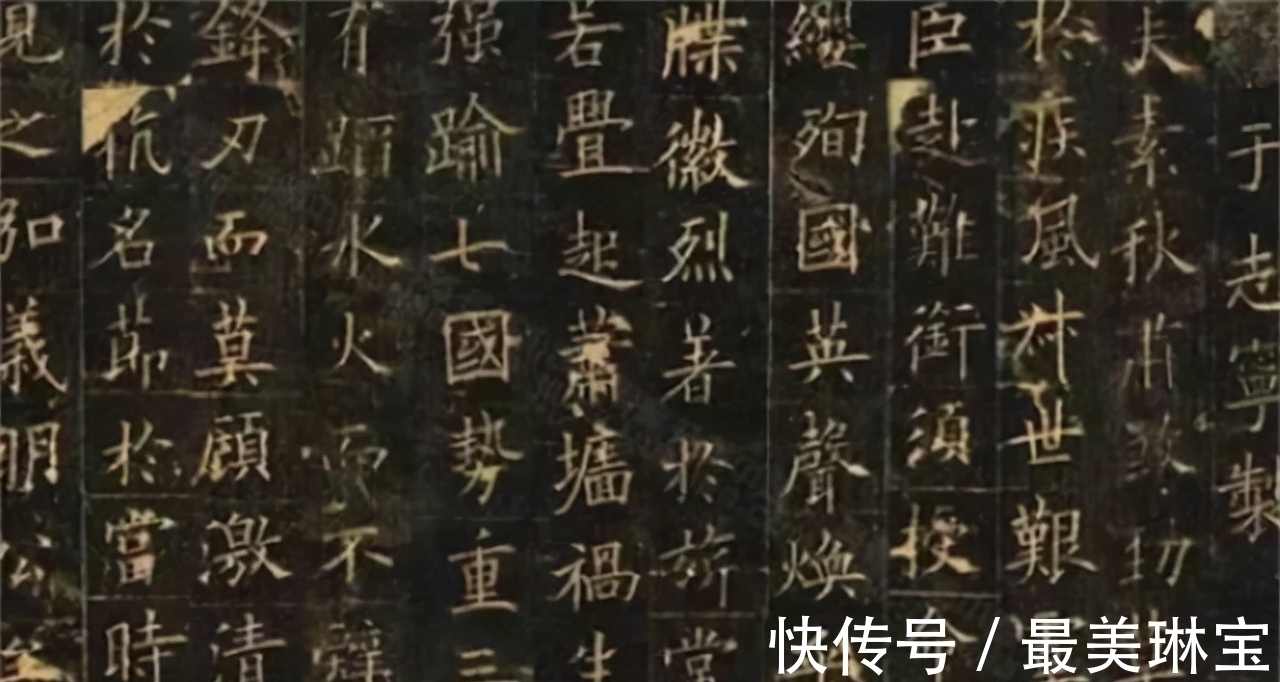 于志寧製
夫素秋肅煞勁
於疾風叶世艱
臣赴難銜須授
纓殉國英聲煥
牒徽烈著於旂常
若疊起蕭墻禍生
强踰七國勢重三
有蹈水火而不辭
鋒刃而莫顧激清
於抗名節於當時
見之弘義明公
快传号 / 最美琳宝